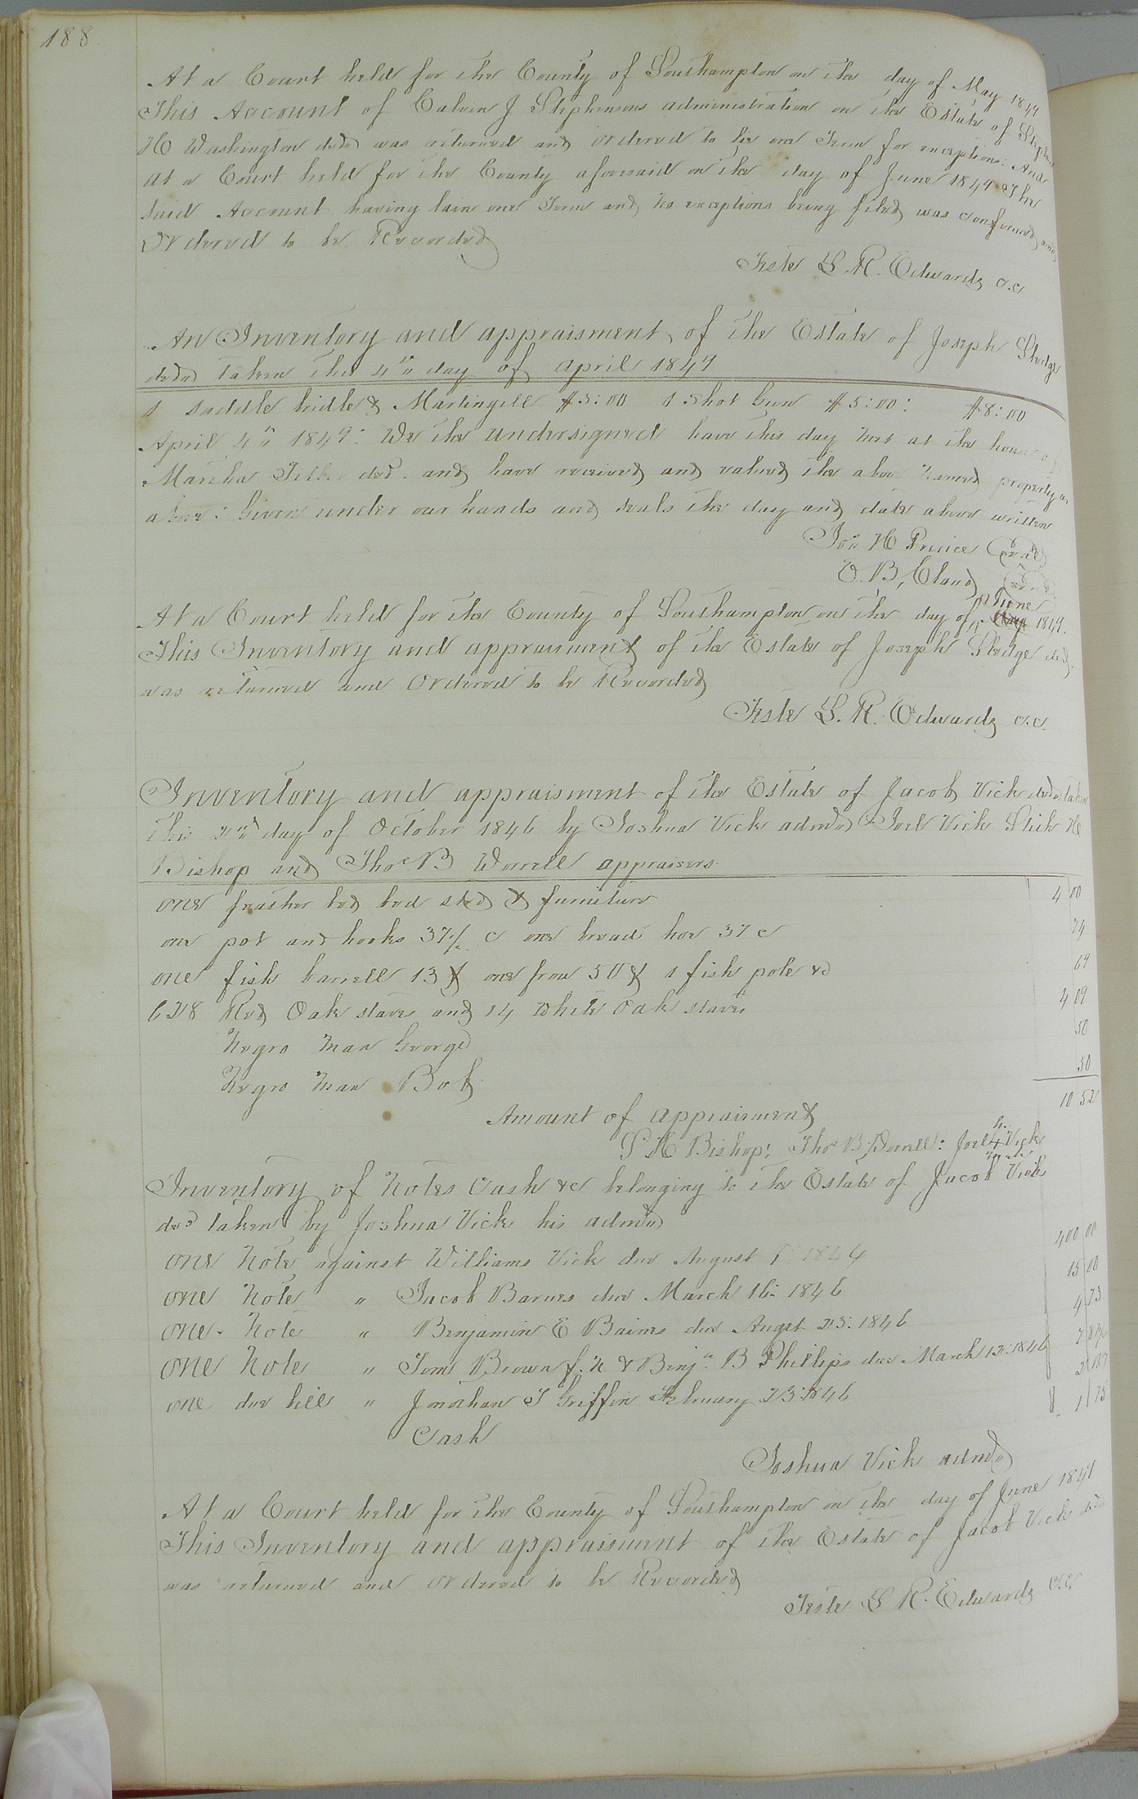 188
At a Court held for the County of Southampton on the day of May 1847
This Account of Calvin J Stephensons administration on the Estate of
H Washington decd was returned and ordered to lie one Term for exceptions: And
at a Court held for the County aforesaid on the day of June 1847 The
said Account having lain one Term and no exceptions being filed was confirmed and
Ordered to be Recorded
Teste L. R. Edwards c.c
An Inventory and appraisment of the Estate of Joseph Sledge
decd taken the 4th day of April 1847
1 Saddle bridle & Martingill $3:00 1 Shot Gun $5:00: $8:00
April 4th 1847: We the undersigned have this day met at the house of
Martha decd. and have received and valued the above named property as
above: Given under our hands and seals the day and date above written
Jos H Prince Seal
O. B, Eland Seal
At a Court held for the County of Southampton on the day of June 1847.
This Inventory and appraisment of the Estate of Joseph Sledge decd
was returned and Ordered to be Recorded
Teste L. R. Edwards c.c.
Inventory and appraisment of the Estate of Jacob Vick decd taken
this 22nd day of October 1846 by Joshua Vick admd Joel Vick H
Bishop and Thos B Worrell appraisers
one feather bed bed sted & furniture 4 00
one pot and hooks 37½ c one broad hoe 37 c 74
one fish barrell 13 & one frow 50 & 1 fish pole &c 64
628 Red Oak staves and 14 white Oak staves 4 09
Negro Man George 50
Negro Man Bob 50
Amount of appraisment 10 52
S H Bishop, Thos B Worrell: Joel Vick
Inventory of Notes Cash &c belonging to the Estate of Jacob Vick
decd taken by Joshua Vick his admd
one Note against Williams Vick due August 1 1844 400 00
one Note " Jacob Barnes due March 16: 1846 15 00
one Note " Benjamin E Baines due Augst 25: 1846 4 73
one Note " Brown & Benjn B Phillips due March 12: 1846
one due bill " Jonathan T Griffin February 23 1846
Cash 1 75
Joshua Vick admd
At a Court held for the County of Southampton on the day of June 1847
This Inventory and appraisment of the Estate of Jacob Vick decd
was returned and ordered to be Recorded
Teste L R. Edwards c.c.